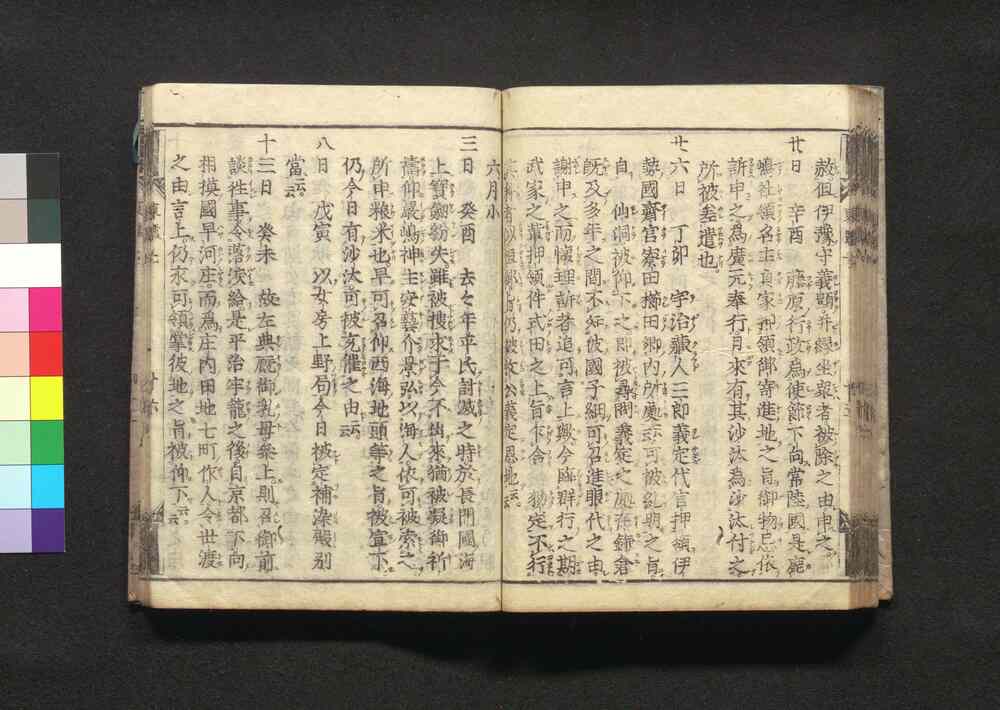 赦但伊豫守義顕并縁坐衆者被除之由申之
廿日 辛酉 藤原行政為使節下向常陸國是鹿
嶋社領名主貞家押領御寄進地之旨御物忌依
訴申之為廣元奉行月來有其沙汰為沙汰付之
所被差遣也
廿六日 丁卯 宇治蔵人三郎義定代官押領伊
勢國齋宮寮田櫛田郷内所處可被糺明之旨
自 仙洞被仰下之即被尋問義定之處在鎌倉
既及多年之間不知彼國子細可召進眼代之由
謝申之而懐理訴者追可言上歟今臨群行之期
武家之輩押領件式田之上旨下含 勅定不行
六月小
三日 癸酉 去々年平氏討滅之時於長門國海
上寶劔紛失雖被捜求于今不出來猶被凝御祈
禱仰嚴嶋神主安藝介景弘以海人依可被索之
所申粮米也早可召仰西海地頭等之旨被宣下
仍今日有沙汰可被充催之由云云
八日 戊寅 以女房上野局今日被定補染殿別
當云云
十三日 癸未 故左典厩御乳母参上則召御前
談往事令落涙給是平治牢籠之後自京都下向
相摸國早河庄而為庄内田地七町作人令世渡
之由言上仍永可領掌彼地之旨被仰下云云